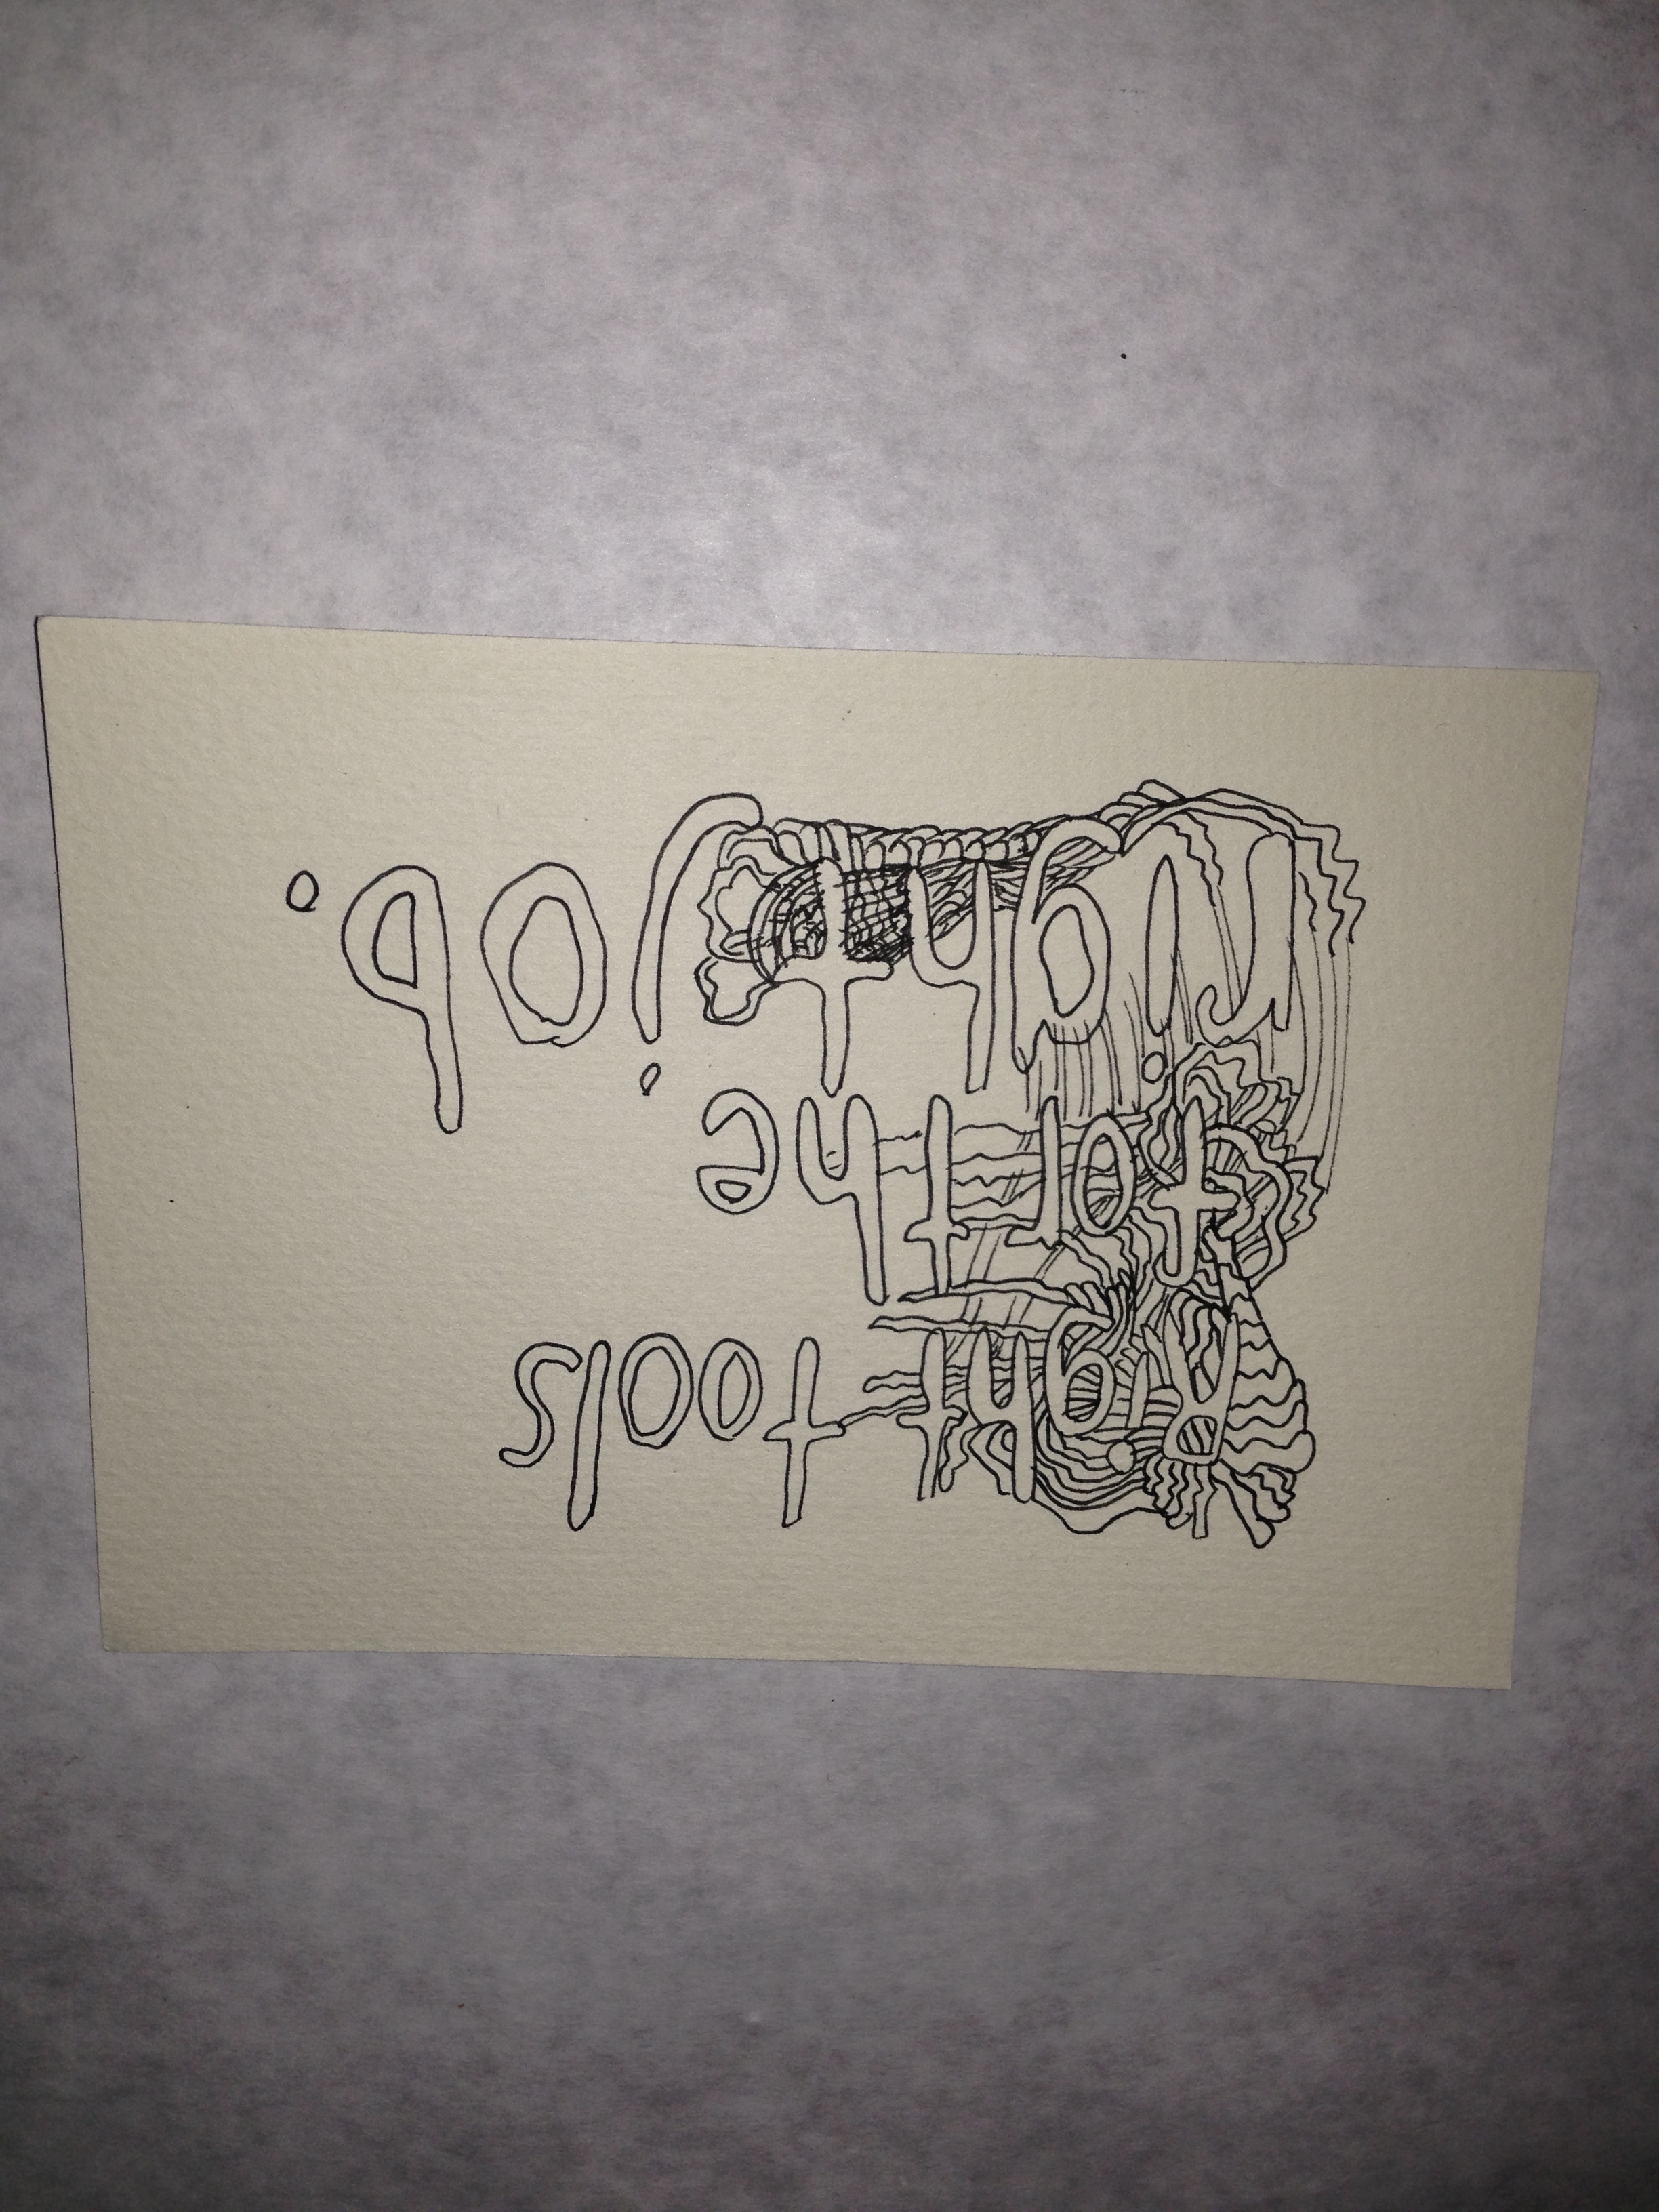 Right tools
for the
right job.